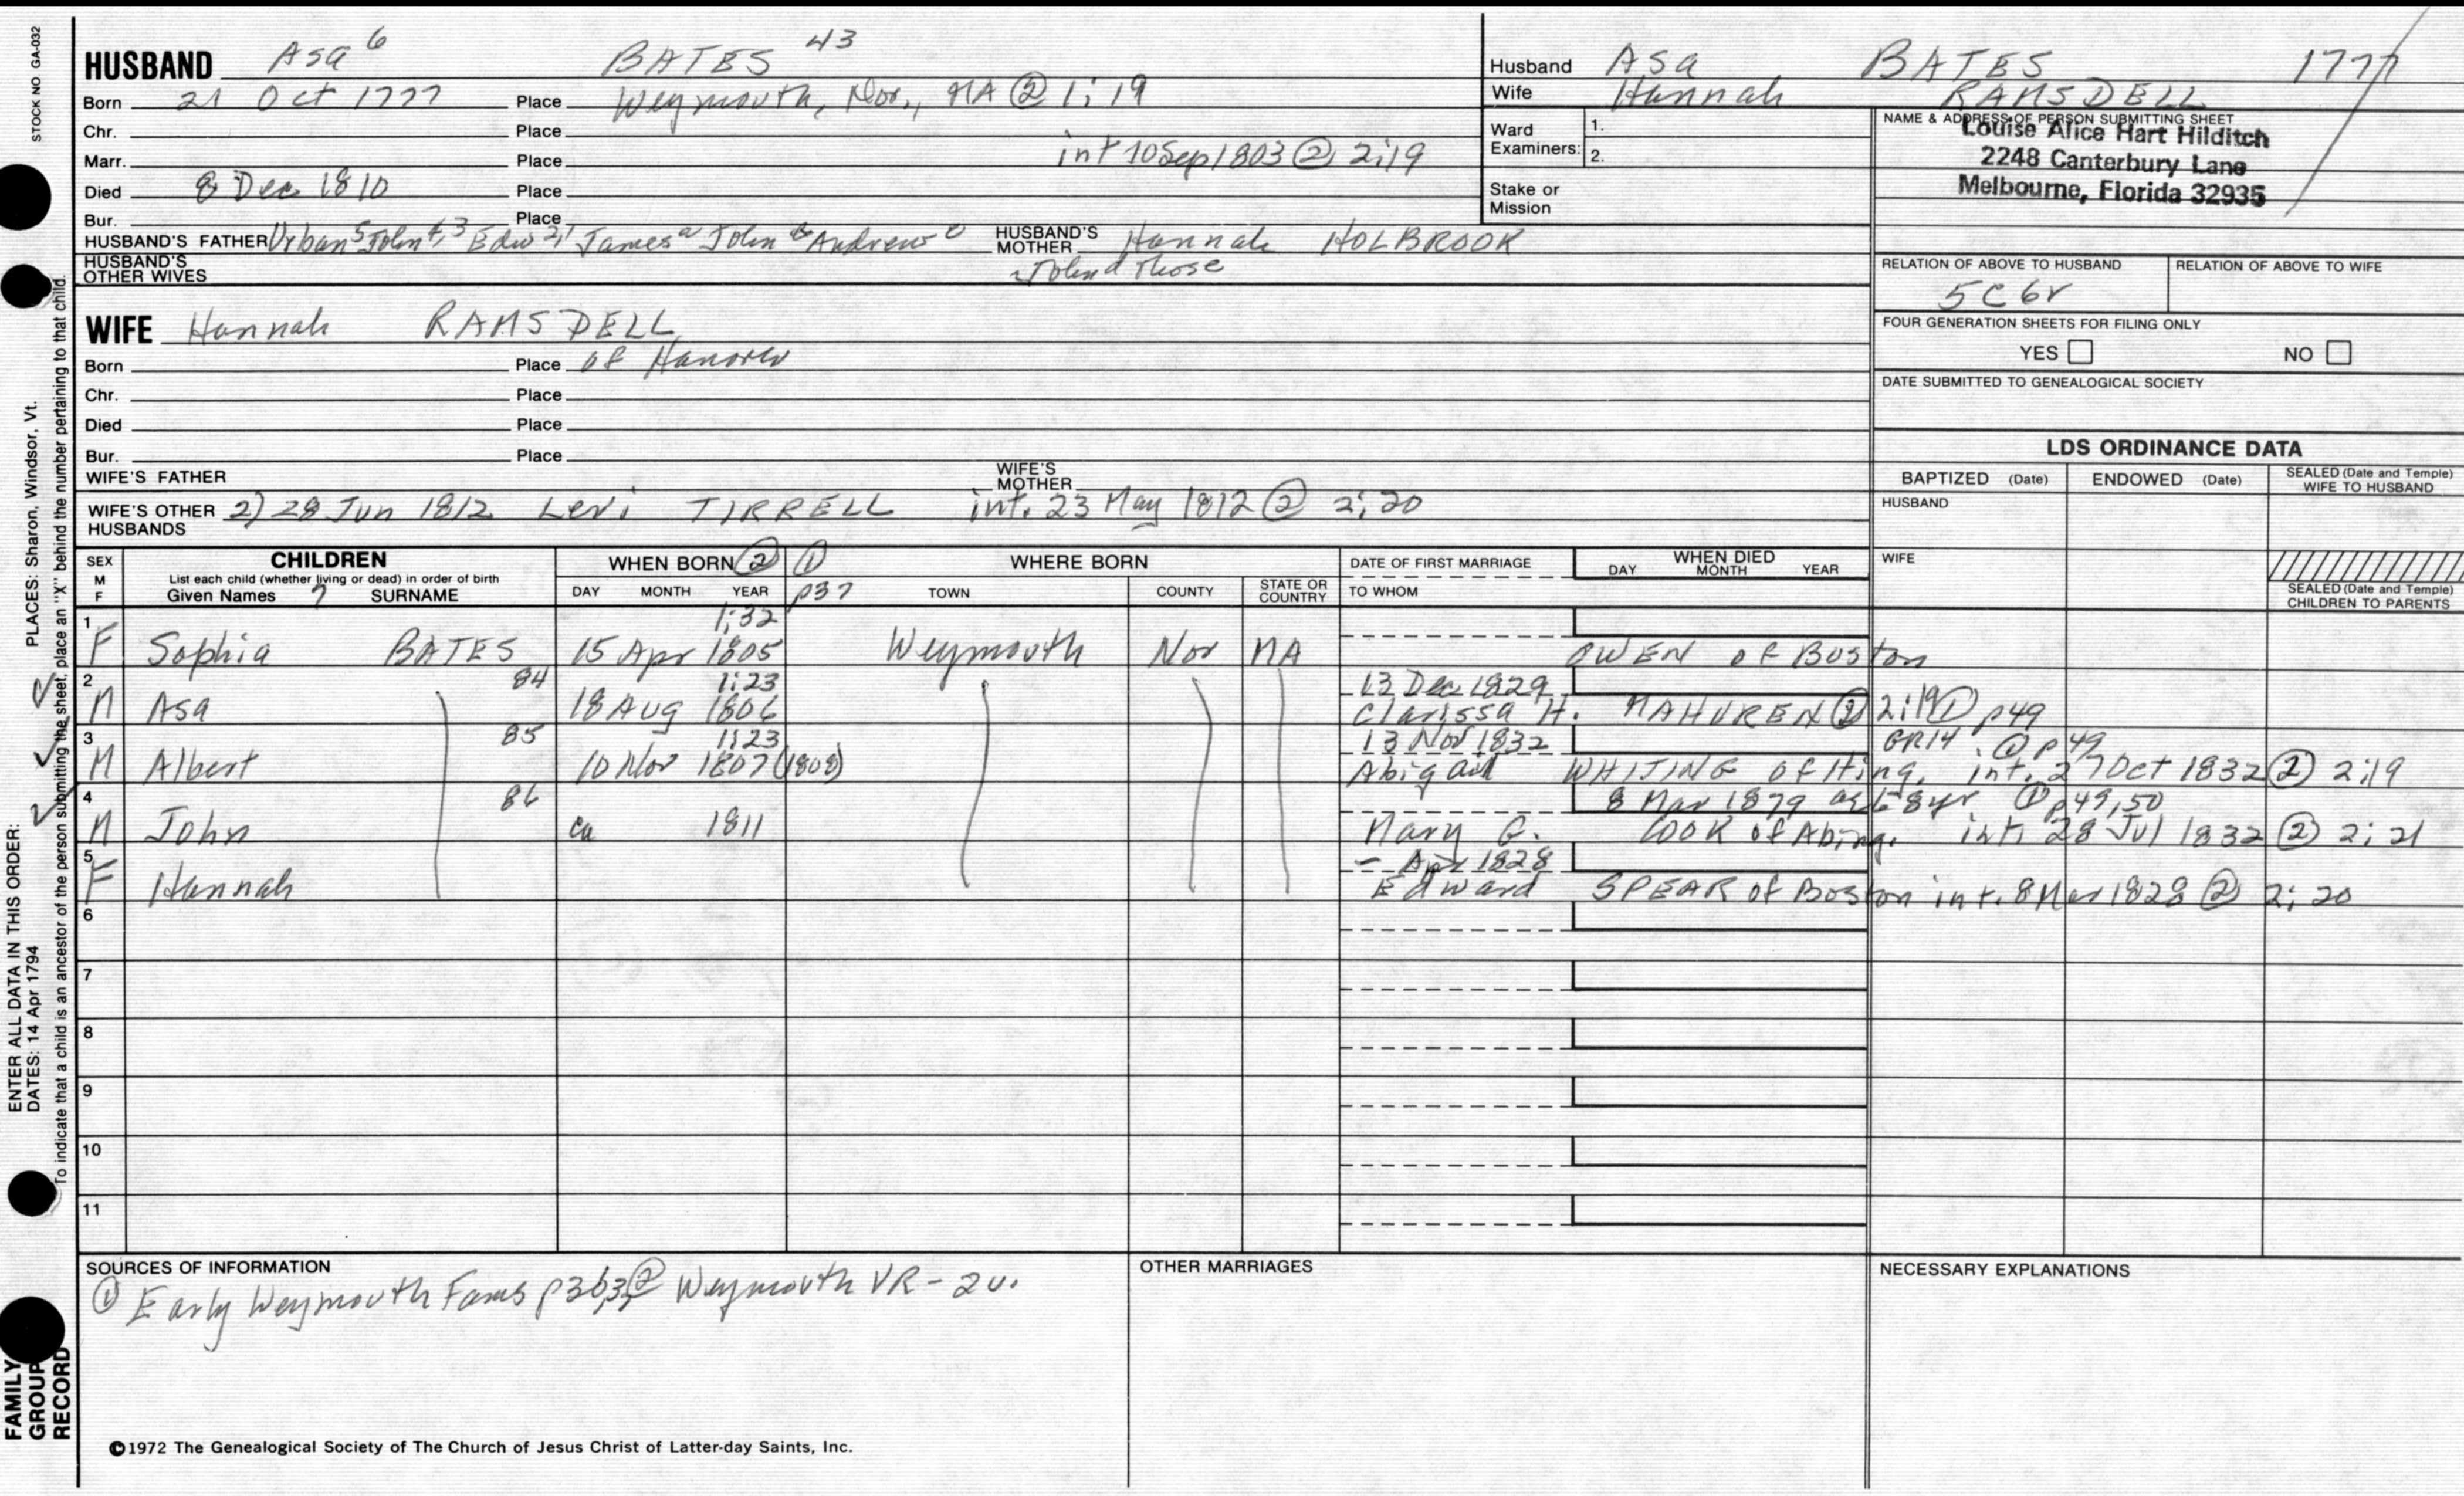 STOCK NO GA-032
HUSBAND Asa 6 BATES 43
Born 21 Oct 1777 Place Weymouth, Nor., MA @ 1:19
Chr. Place
Marr. Place int 10 Sep 1803 ② 2:19
Died 8 Dec 1810 Place
Bur. Place
HUSBAND'S FATHER Urban 5 John 4,3 Edw 2,1 James a John b Andrew c HUSBAND'S MOTHER Hannah HOLBROOK
HUSBAND'S OTHER WIVES John d Those
Husband Asa BATES 1777
Wife Hannah RAMSDELL
Ward Examiners: 1.
2.
Stake or Mission
NAME & ADDRESS OF PERSON SUBMITTING SHEET
Louise Alice Hart Hilditch
2248 Canterbury Lane
Melbourne, Florida 32935
RELATION OF ABOVE TO HUSBAND RELATION OF ABOVE TO WIFE
5C6r
FOUR GENERATION SHEETS FOR FILING ONLY
YES NO
DATE SUBMITTED TO GENEALOGICAL SOCIETY
WIFE Hannah RAMSDELL
Born Place of Hanover
Chr. Place
Died Place
Bur. Place
WIFE'S FATHER WIFE'S MOTHER
WIFE'S OTHER HUSBANDS 2) 28 Jun 1812 Levi TIRRELL int. 23 May 1812 ② 2:20
LDS ORDINANCE DATA
BAPTIZED (Date) ENDOWED (Date) SEALED (Date and Temple) WIFE TO HUSBAND
HUSBAND
WIFE
SEALED (Date and Temple) CHILDREN TO PARENTS
SEX M F
CHILDREN
List each child (whether living or dead) in order of birth
Given Names 7 SURNAME
WHEN BORN ② ①
DAY MONTH YEAR p37
WHERE BORN
TOWN COUNTY STATE OR COUNTRY
DATE OF FIRST MARRIAGE
TO WHOM
WHEN DIED
DAY MONTH YEAR
1 1:32
F Sophia BATES 15 Apr 1805 Weymouth Nor MA OWEN of Boston
2 84 1:23 13 Dec 1829
M Asa 18 Aug 1806 Clarissa H. MAHUREN ② 2:19 ① p49
3 85 1:23 13 Nov 1832 GR14 . ① p49
M Albert 10 Nov 1807 (1808) Abigail WHITING of Hing. int. 27 Oct 1832 ② 2:19
4 86 8 Mar 1879 ae 68yr ① p49,50
M John ca 1811 Mary G. COOK of Abing. int. 28 Jul 1832 ② 2:21
5 – Apr 1828
F Hannah Edward SPEAR of Boston int. 8 Mar 1828 ② 2:20
6
7
8
9
10
11
SOURCES OF INFORMATION
① Early Weymouth Fams ② Weymouth VR – 2v.
OTHER MARRIAGES
NECESSARY EXPLANATIONS
©1972 The Genealogical Society of The Church of Jesus Christ of Latter-day Saints, Inc.
ENTER ALL DATA IN THIS ORDER: PLACES: Sharon, Windsor, Vt.
DATES: 14 Apr 1794
To indicate that a child is an ancestor of the person submitting the sheet, place an "X" behind the number pertaining to that child.
FAMILY
GROUP
RECORD